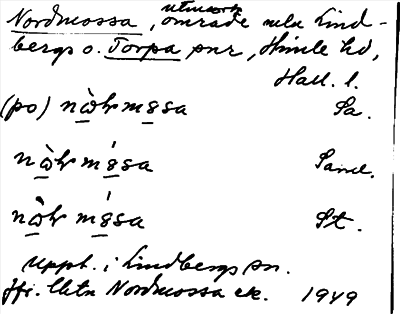 Nordmossa, utmarks
område mln Lind-
bergs o. Torpa snr, Himle hd,
Hall. l.
(po) nὼr m8sa Sa.
nὼr ḿ8sa Sand.
nὼr ḿ8sa St.
Uppt. i Lindbergs sn.
Jfr. Nordmossa ek. 1949